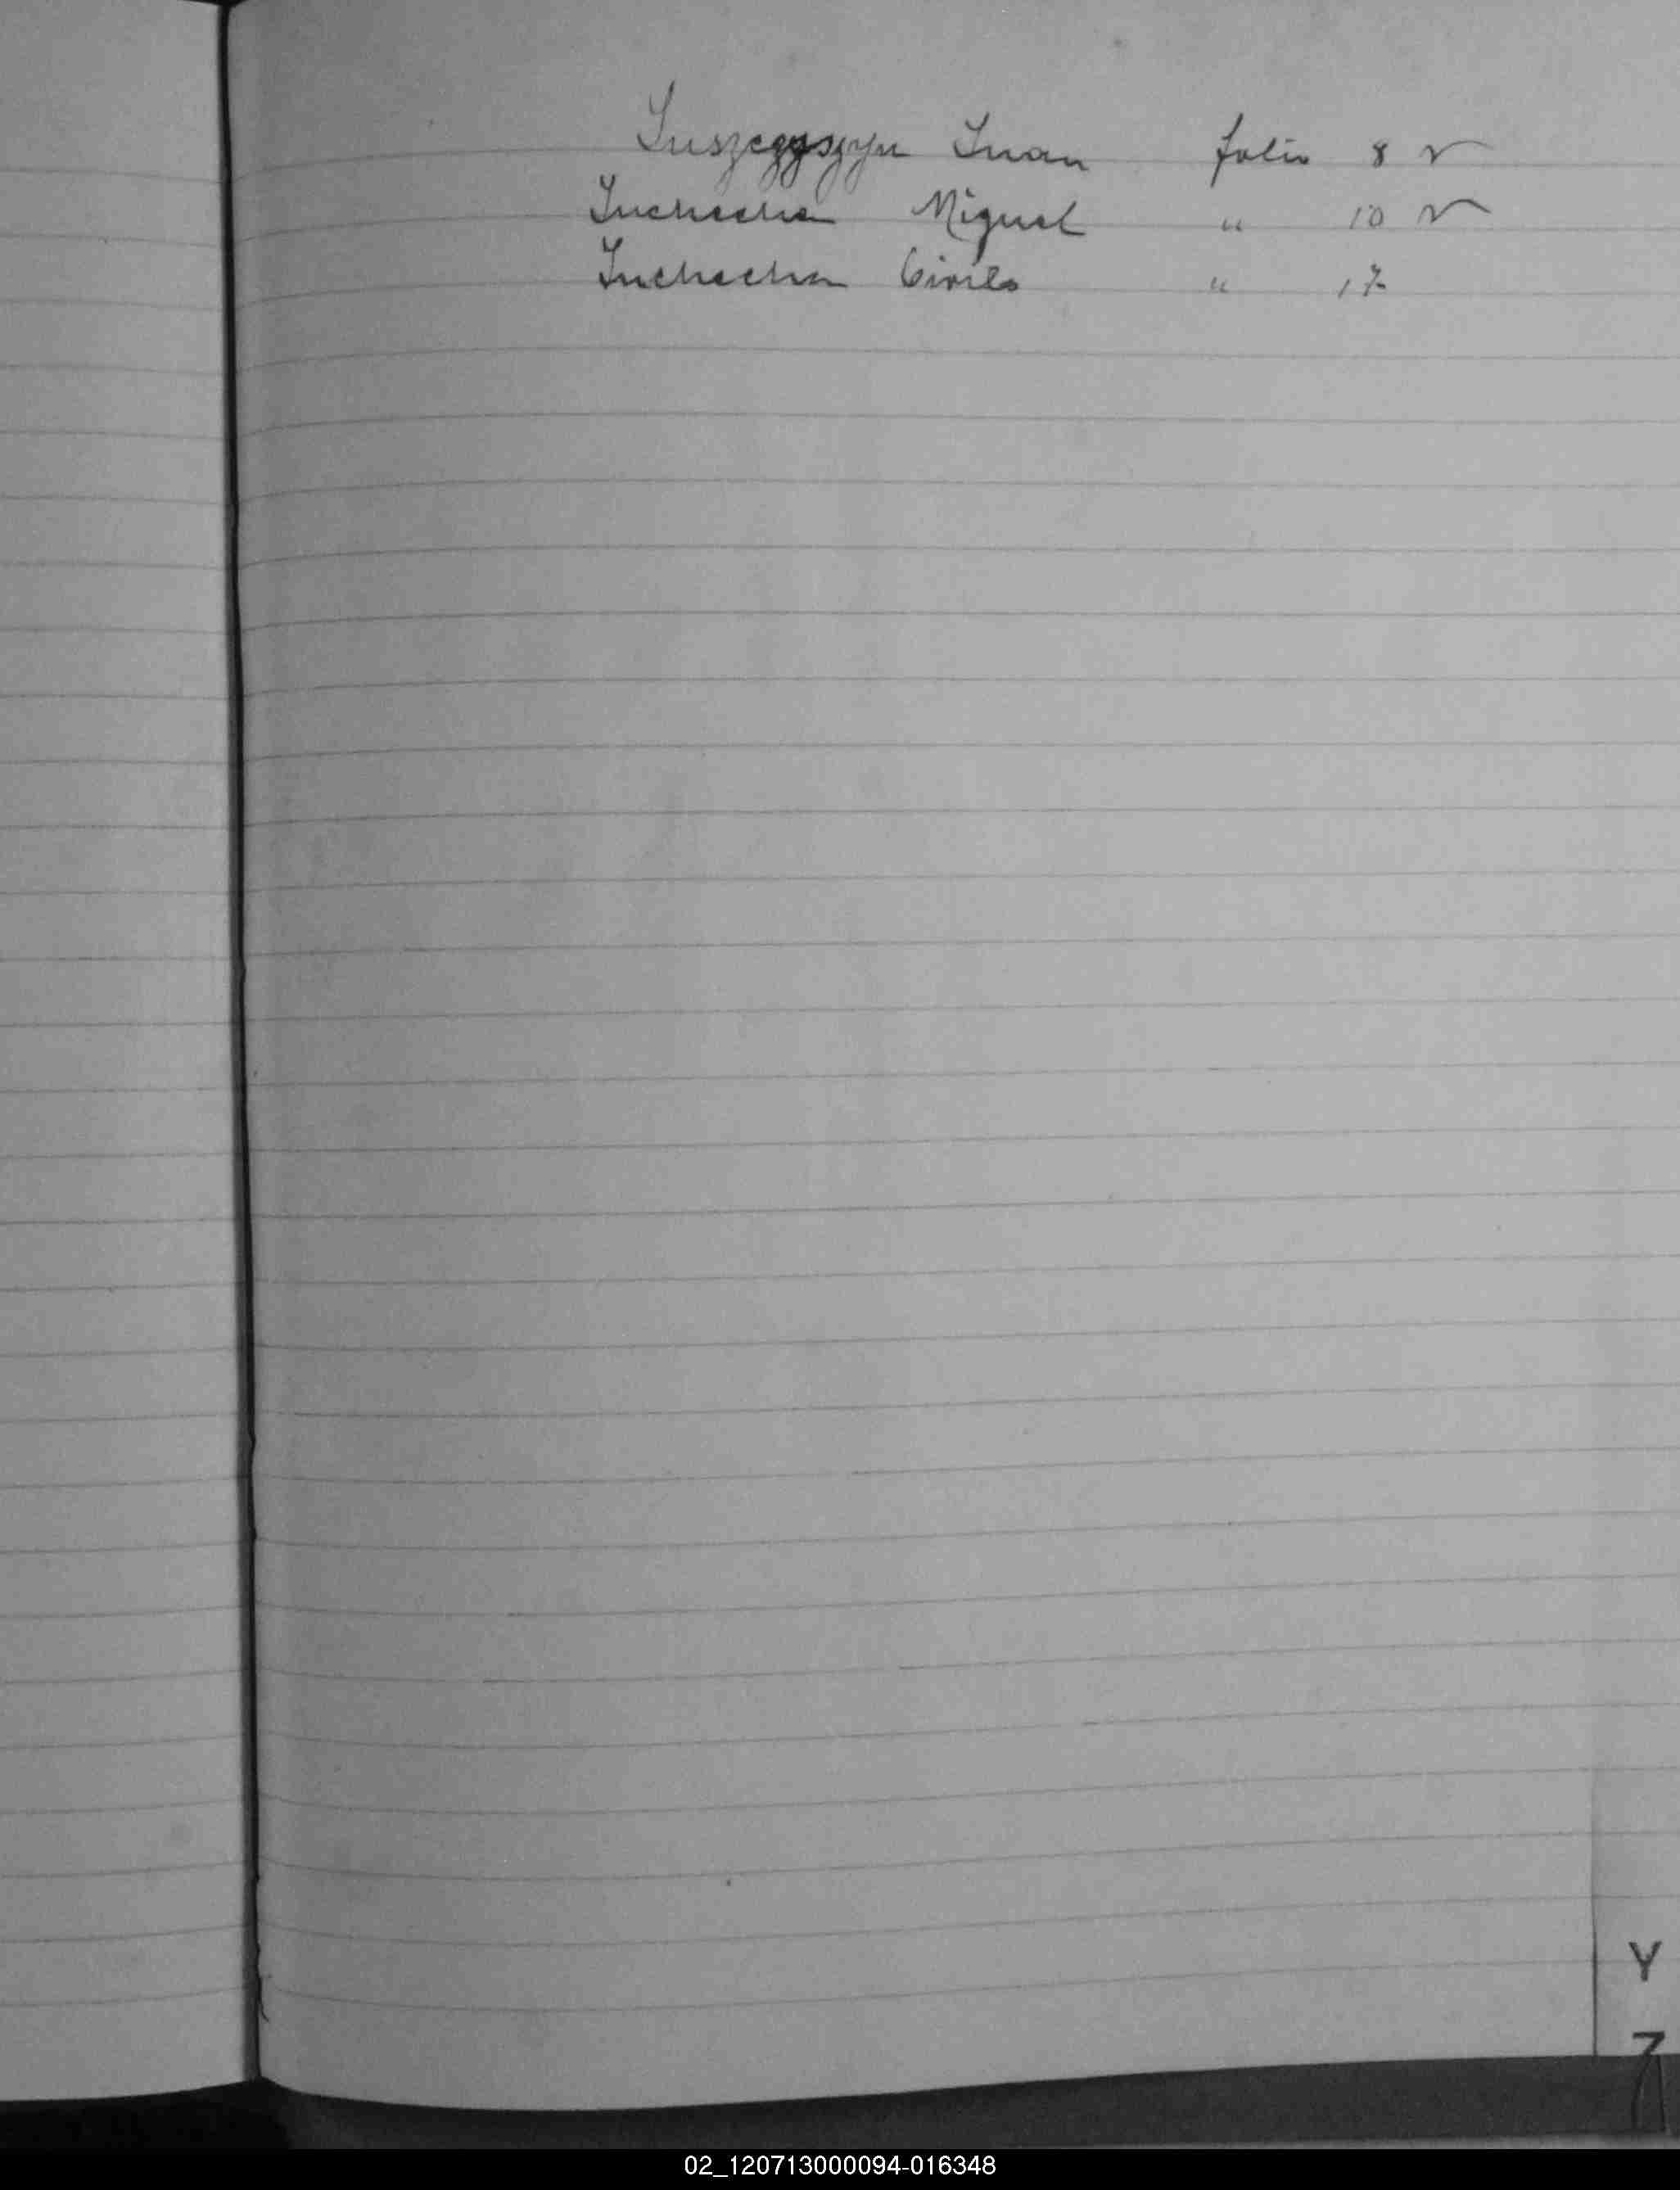 Juszczyszyn Juan folio 8 v
Juchecha Miguel " 10 v
Juchecha Cirilo " 17
Y
Z
02_120713000094-016348